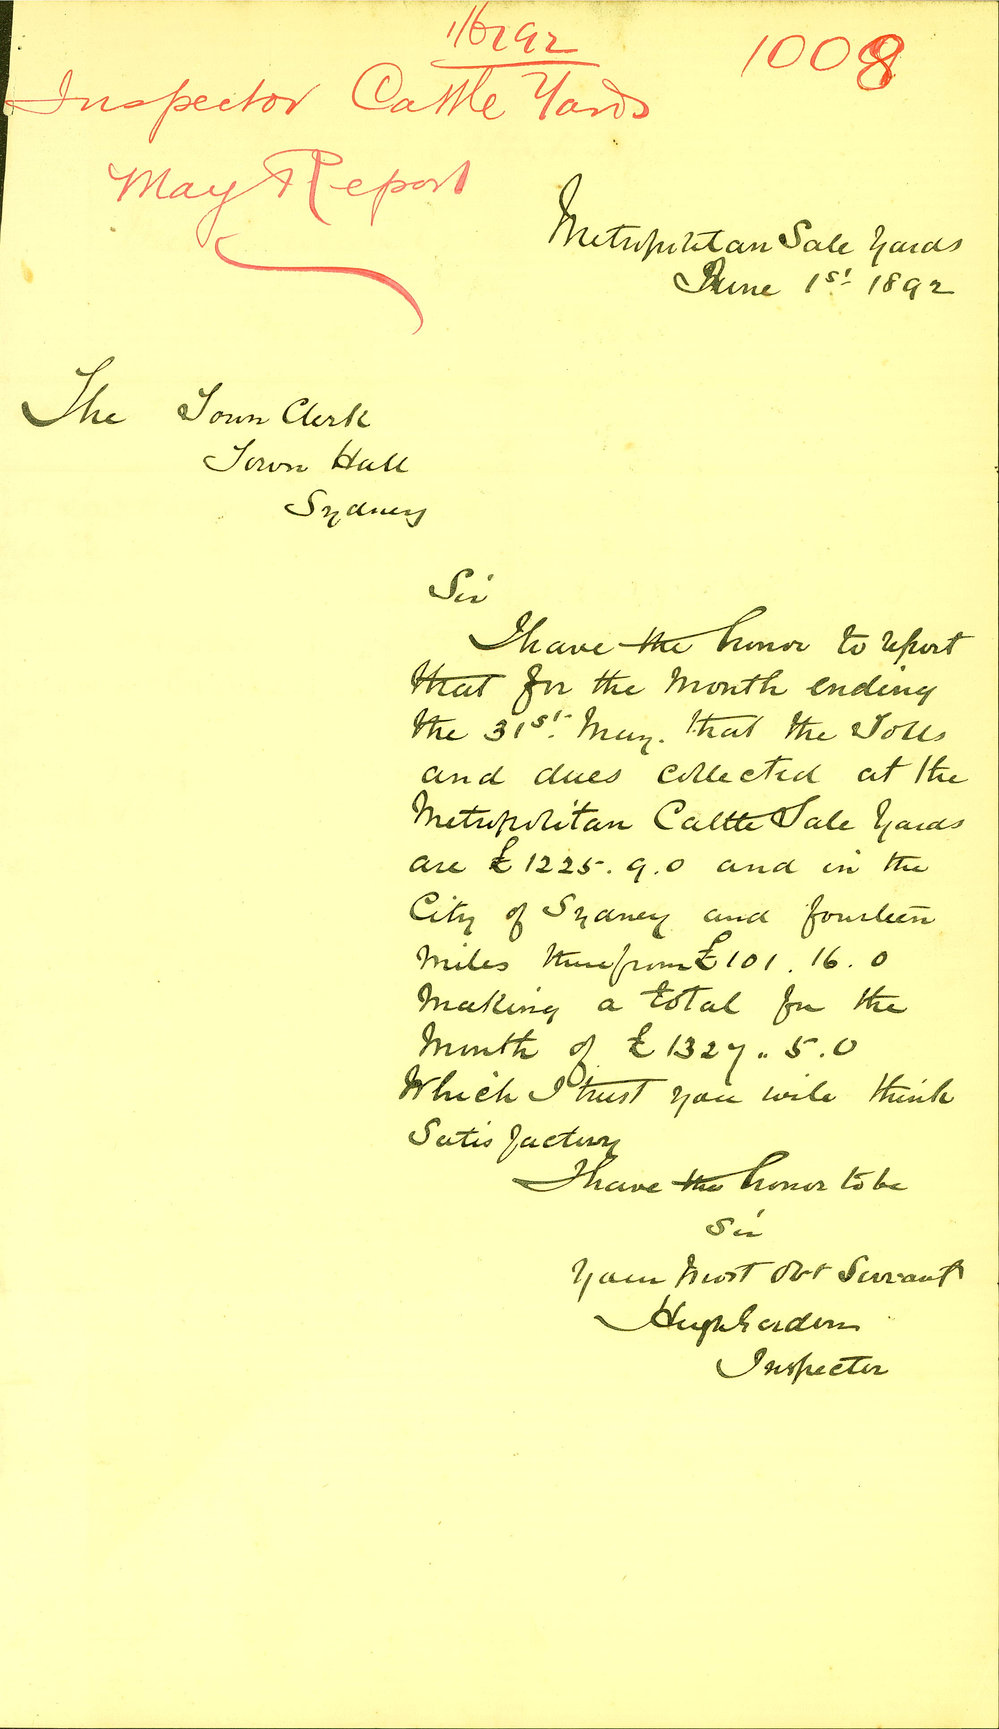 1/6/92
1008
Inspector Cattle Yards
May Report
Metropolitan Sale Yards
June 1st 1892
The Town Clerk
Town Hall
Sydney
Sir
I have the honor to report
that for the Month ending
the 31st. May. that the Tolls
and dues collected at the
Metropolitan Cattle Sale Yards
are £1225.9.0 and in the
City of Sydney and fourteen
miles therefrom £101.16.0
Making a total for the
Month of £1327..5.0
Which I trust you will think
Satisfactory
I have the honor to be
Sir
Your Most Obt Servant
Hugh
Inspector